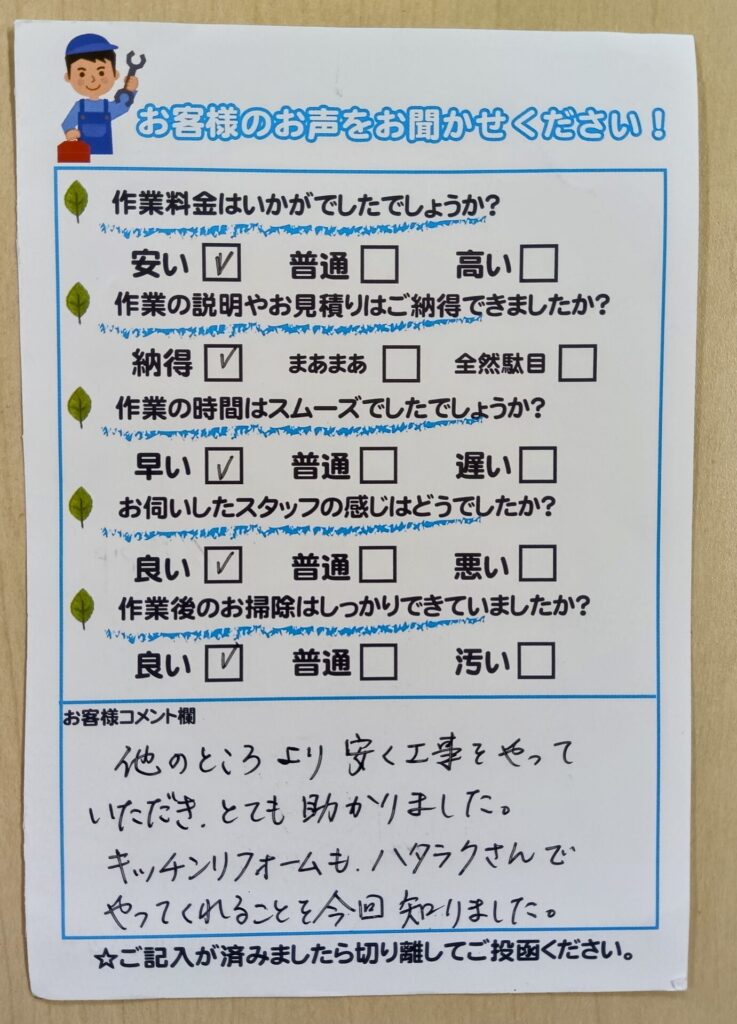 お客様のお声をお聞かせください!
作業料金はいかがでしたでしょうか?
安い ☑ 普通 □ 高い □
作業の説明やお見積りはご納得できましたか?
納得 ☑ まあまあ □ 全然駄目 □
作業の時間はスムーズでしたでしょうか?
早い ☑ 普通 □ 遅い □
お伺いしたスタッフの感じはどうでしたか?
良い ☑ 普通 □ 悪い □
作業後のお掃除はしっかりできていましたか?
良い ☑ 普通 □ 汚い □
お客様コメント欄
他のところより安く工事をやって
いただき、とても助かりました。
キッチンリフォームも、ハタラクさんで
やってくれることを今回知りました。
☆ご記入が済みましたら切り離してご投函ください。